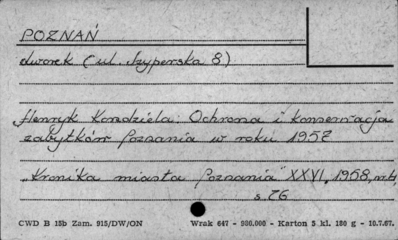 POZNAŃ
dworek (ul. Szyperska 8)
„Henryk Kondziela: Ochrona i konserwacja
zabytków Poznania w roku 1957
„Kronika miasta Poznania" XXVI, 1958, nr 4,
s. 76
CWD B 15b Zam. 915/DW/ON Wrak 647 - 900.000 - Karton 5 kl. 180 g - 10.7.67.